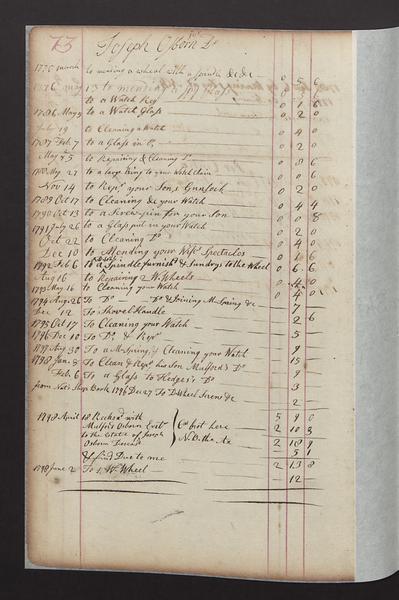 73 Joseph Osborn Dr
to making a wheel with a Spindle &c &c — 0 5 6
to a Watch Key — 0 1 6
1786 May 9 to a Watch Glass — 0 2 0
July 19 to Cleaning a Watch — 0 4 0
1787 Feb 7 to a Glass in Do — 0 2 0
May 25 to Repairing & Cleaning Do
1788 May 27 to a large ring to your Watch Chain — 0 0 6
Nov 14 to Repg your Son's Gunlock — 0 2 0
1789 Oct 17 to Cleaning &c your Watch — 0 4 4
1790 Oct 13 to a Screw-pin for your Son — 0 0 8
1791 July 26 to a Glass put in your Watch — 0 2 0
Oct 22 to Cleaning Do — 0 4 0
Dec 10 to Mending your Wifes Spectacles — 0 1 6
1792 Feb 6 to a Spindle furnish'd & Sundrys to the Wheel — 0 6 6
Aug 16 to Repairing 2 W. Wheels — 0 4 0
1793 May 16 to Cleaning your Watch — 0 4 0
1794 Aug 26 To Do — Do & Joining M. Spring &c — 7
Dec 12 To Shovel Handle — 2 6
1795 Oct 17 To Cleaning your Watch —
1796 Dec 10 To Do & Repg — 5
1797 Aug 30 To a M. Spring, & Cleaning your Watch — 9
1798 Jan 8 To Clean & Repg his Son Mulford's Do — 15
Feb 6 To a Glass to Hedges's Do — 3
from Nat's Shop Book 1796 Dec 27 To D Wheel Screw &c — 2
1798 April 18 Reckod with 5 9 0
Mulford Osborn Exitr Cr first here 2 10 3
to the Estate of Joseph N.D. the Ax 2 18 9
Osborn Deceasd 5 1
& find Due to me 2 13 8
1798 June 2 To 1 W. Wheel — 12